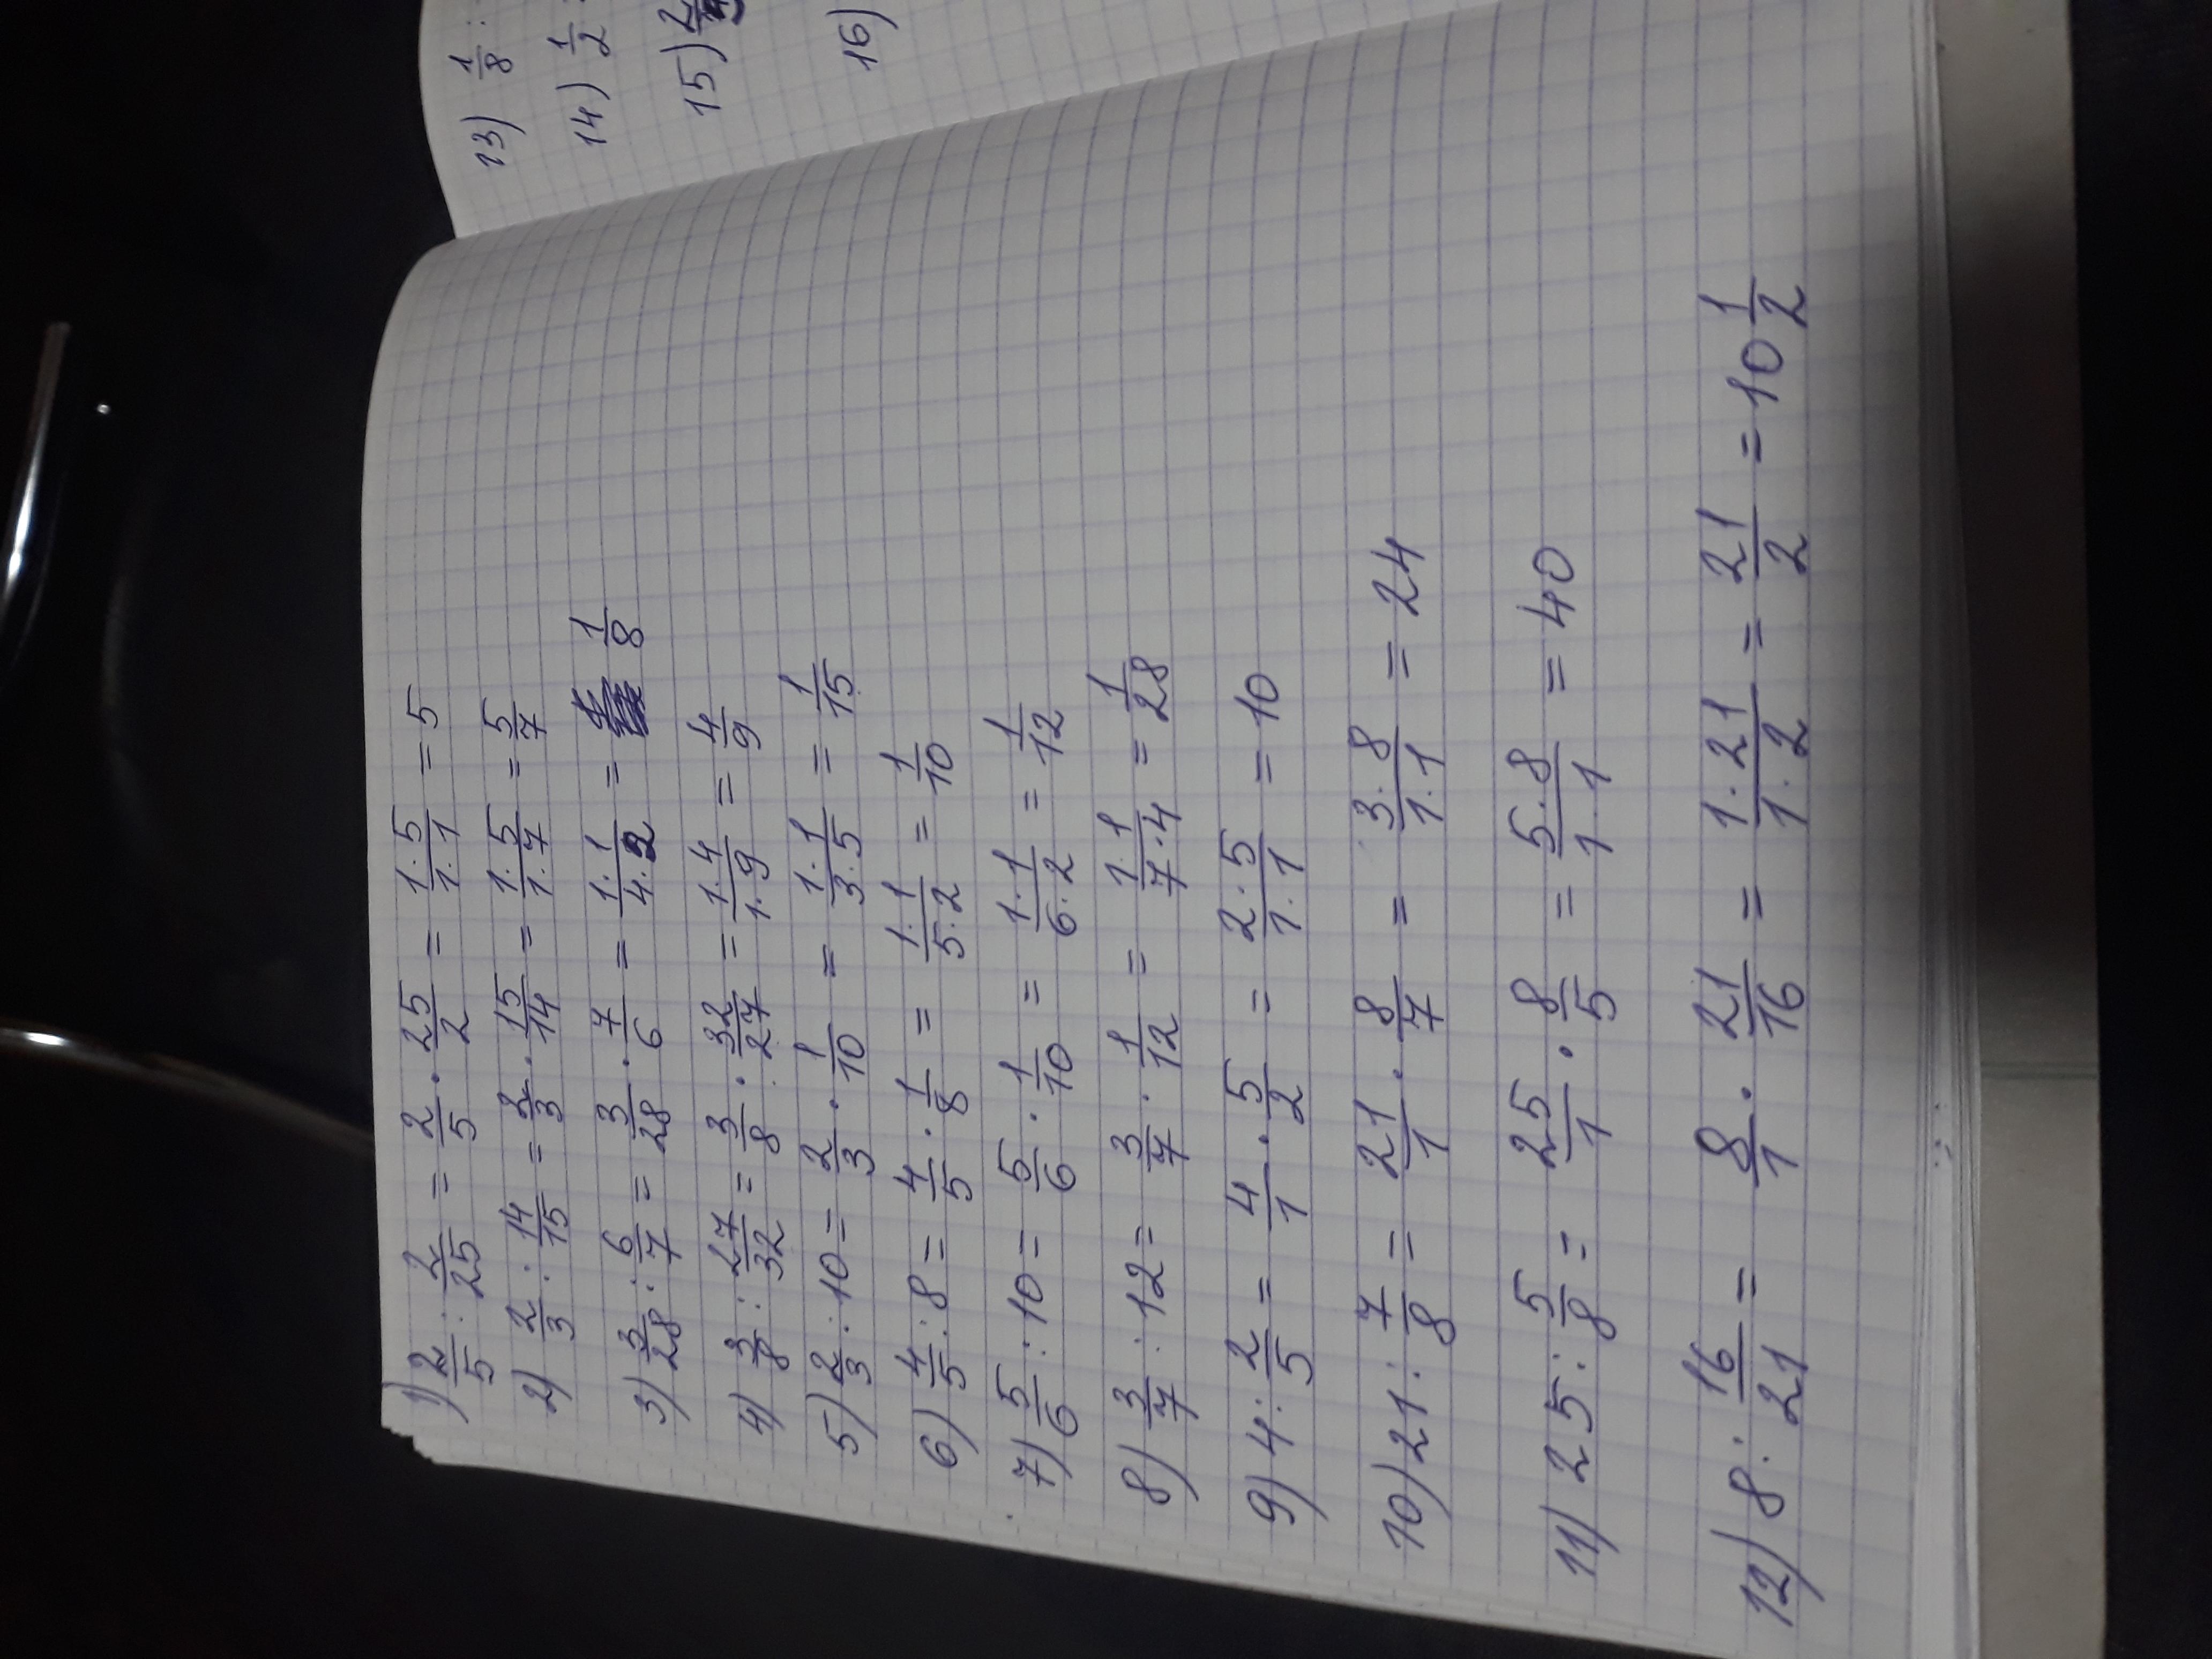 1) 2/5 : 2/25 = 2/5 · 25/2 = 1·5/1·1 = 5
2) 2/3 : 14/15 = 2/3 · 15/14 = 1·5/1·7 = 5/7
3) 3/28 : 6/7 = 3/28 · 7/6 = 1·1/4·2 = 1/8
4) 3/8 : 27/32 = 3/8 · 32/27 = 1·4/1·9 = 4/9
5) 2/3 : 10 = 2/3 · 1/10 = 1·1/3·5 = 1/15
6) 4/5 : 8 = 4/5 · 1/8 = 1·1/5·2 = 1/10
7) 5/6 : 10 = 5/6 · 1/10 = 1·1/6·2 = 1/12
8) 3/7 : 12 = 3/7 · 1/12 = 1·1/7·4 = 1/28
9) 4 : 2/5 = 4/1 · 5/2 = 2·5/1·1 = 10
10) 21 : 7/8 = 21/1 · 8/7 = 3·8/1·1 = 24
11) 25 : 5/8 = 25/1 · 8/5 = 5·8/1·1 = 40
12) 8 : 16/21 = 8/1 · 21/16 = 1·21/1·2 = 21/2 = 10 1/2
13) 1/8 :
14) 1/2 :
15) 2
16)